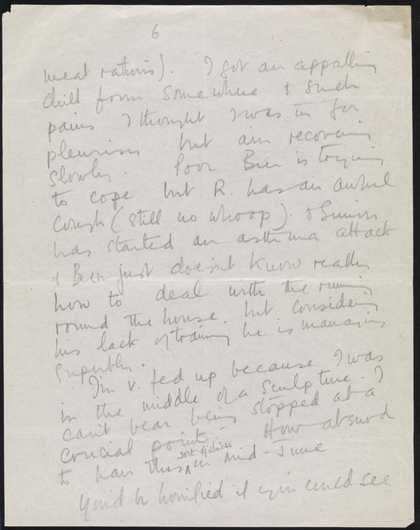 6
meat rations). I got an appalling
chill from somewhere & such
pains I thought I was in for
pleurisy but am recovering
slowly. Poor Ben is trying
to cope but R. has an awful
cough (still no whoop) & Simon
has started an asthma attack
& Ben just doesn't know really
how to deal with the running
round the house. but considering
his lack of training he is managing
superbly.
I'm v. fed up because I was
in the middle of a sculpture. I
can't bear being stopped at a
crucial point. How absurd
to have this in mid-June
You'd be horrified if you could see